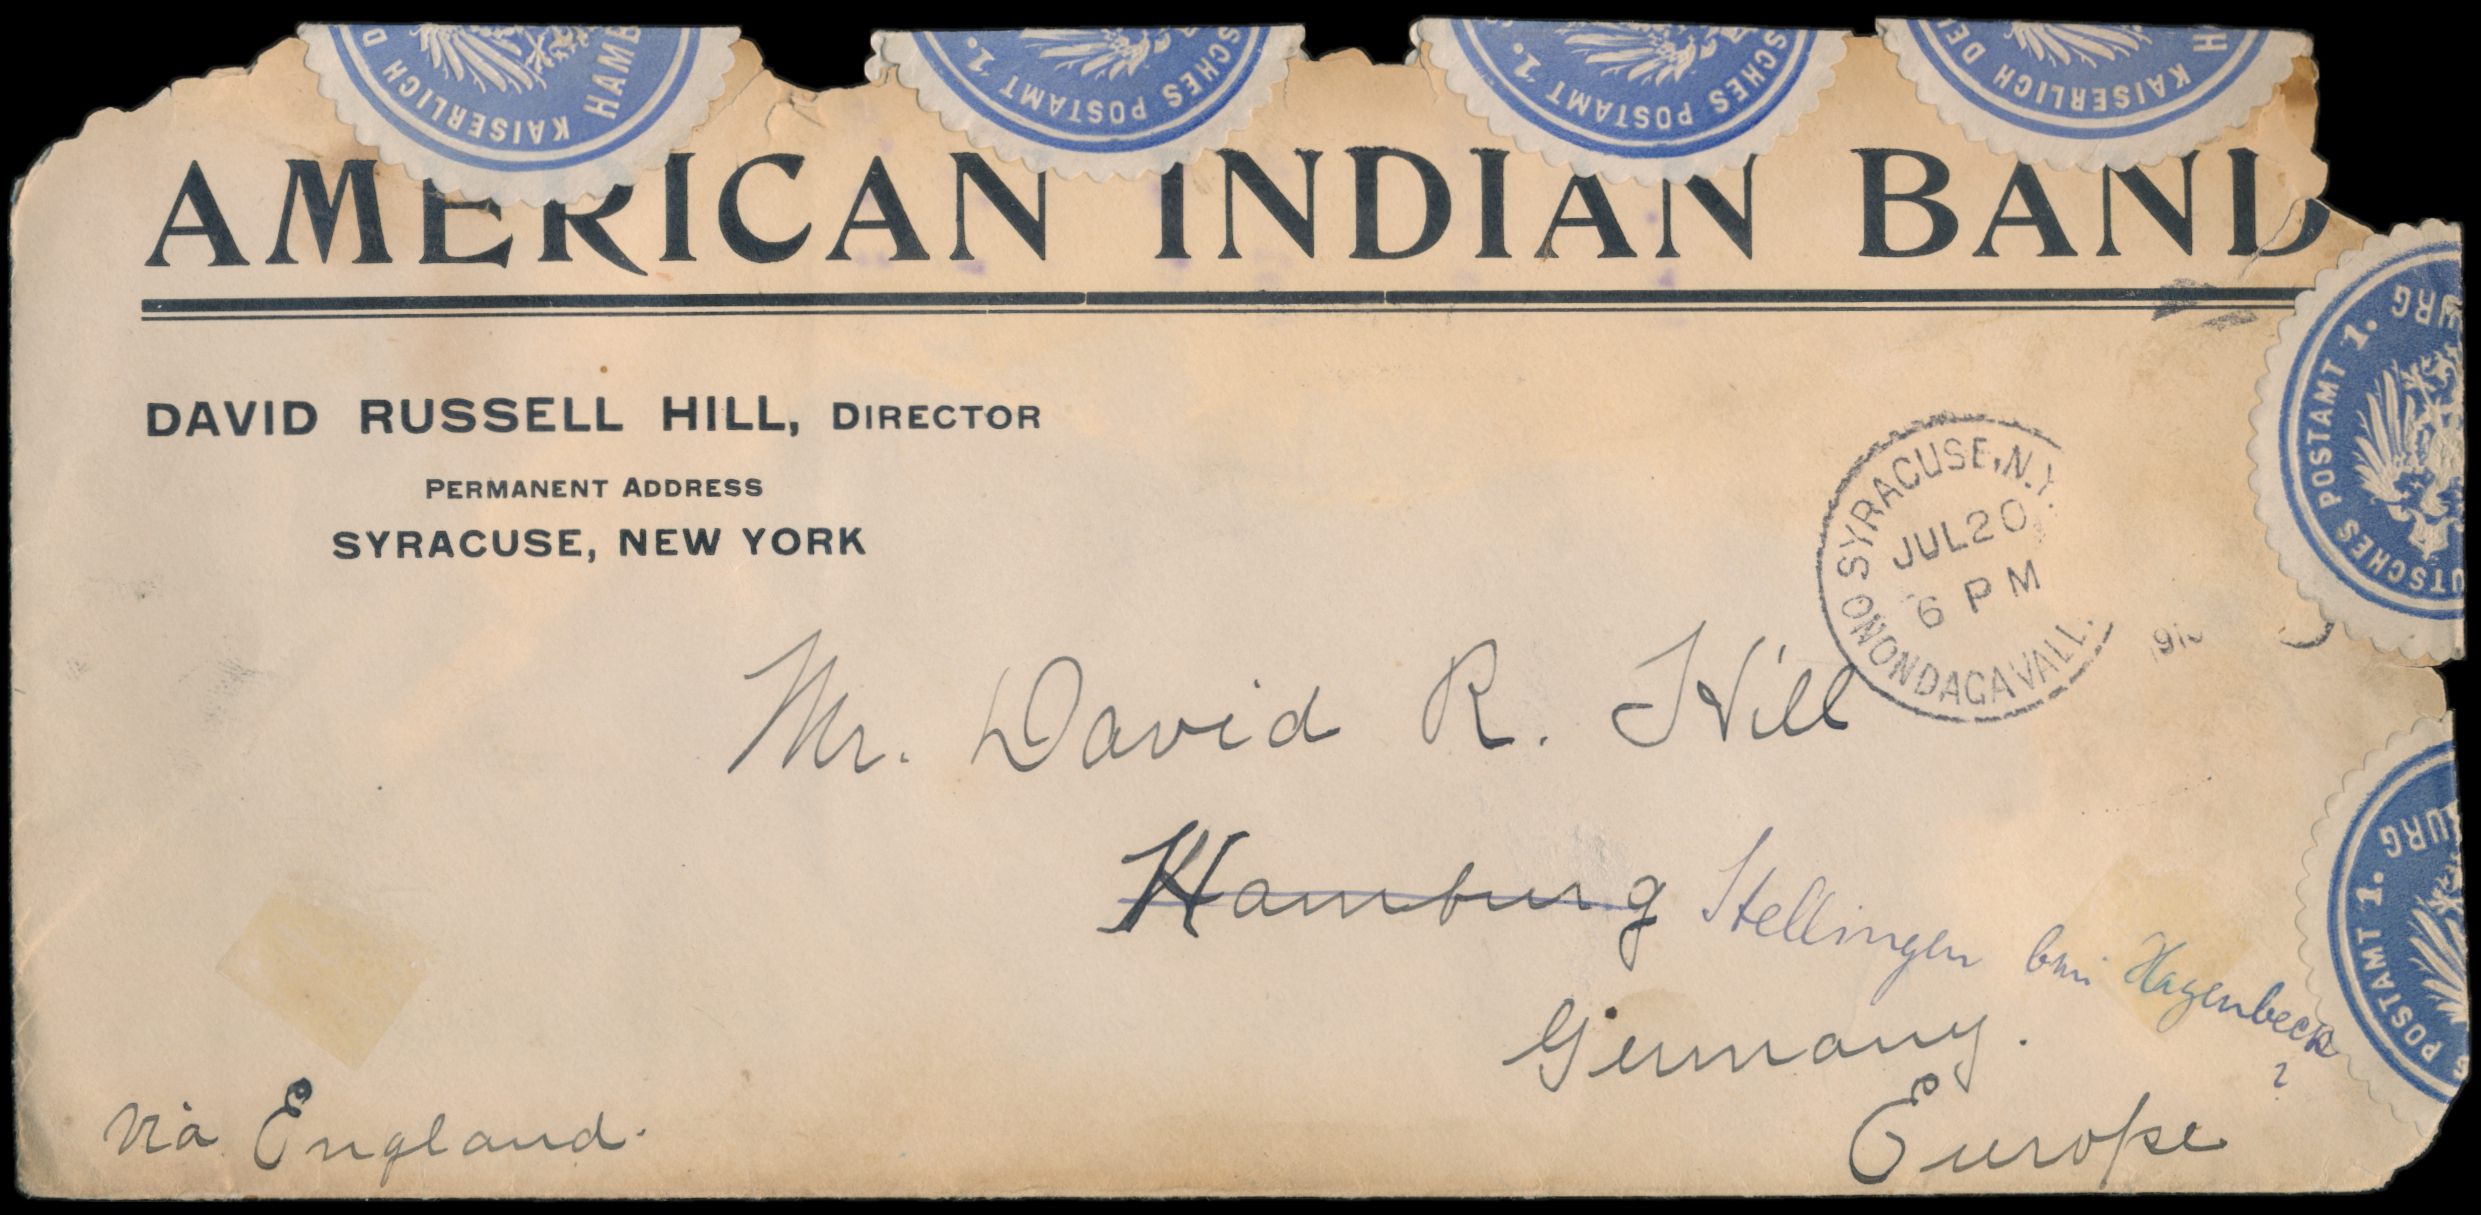 KAISERLICH D
HAMB
SCHES POSTAMT 1.
SCHES POSTAMT 1.
KAISERLICH DE
H
AMERICAN INDIAN BAND
DAVID RUSSELL HILL, DIRECTOR
PERMANENT ADDRESS
SYRACUSE, NEW YORK
UTSCHES POSTAMT 1.
URG
SYRACUSE, N.Y.
JUL 20
6 PM
ONONDAGA VALL.
Mr. David R. Hill
Hamburg Stellingen bei Hagenbeck
?
Germany.
Europe
via England.
POSTAMT 1.
URG